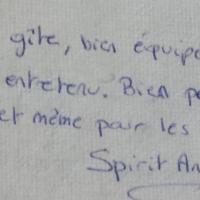 gîte, bien équipé
entretenu. Bien p
et même pour les
Spirit An